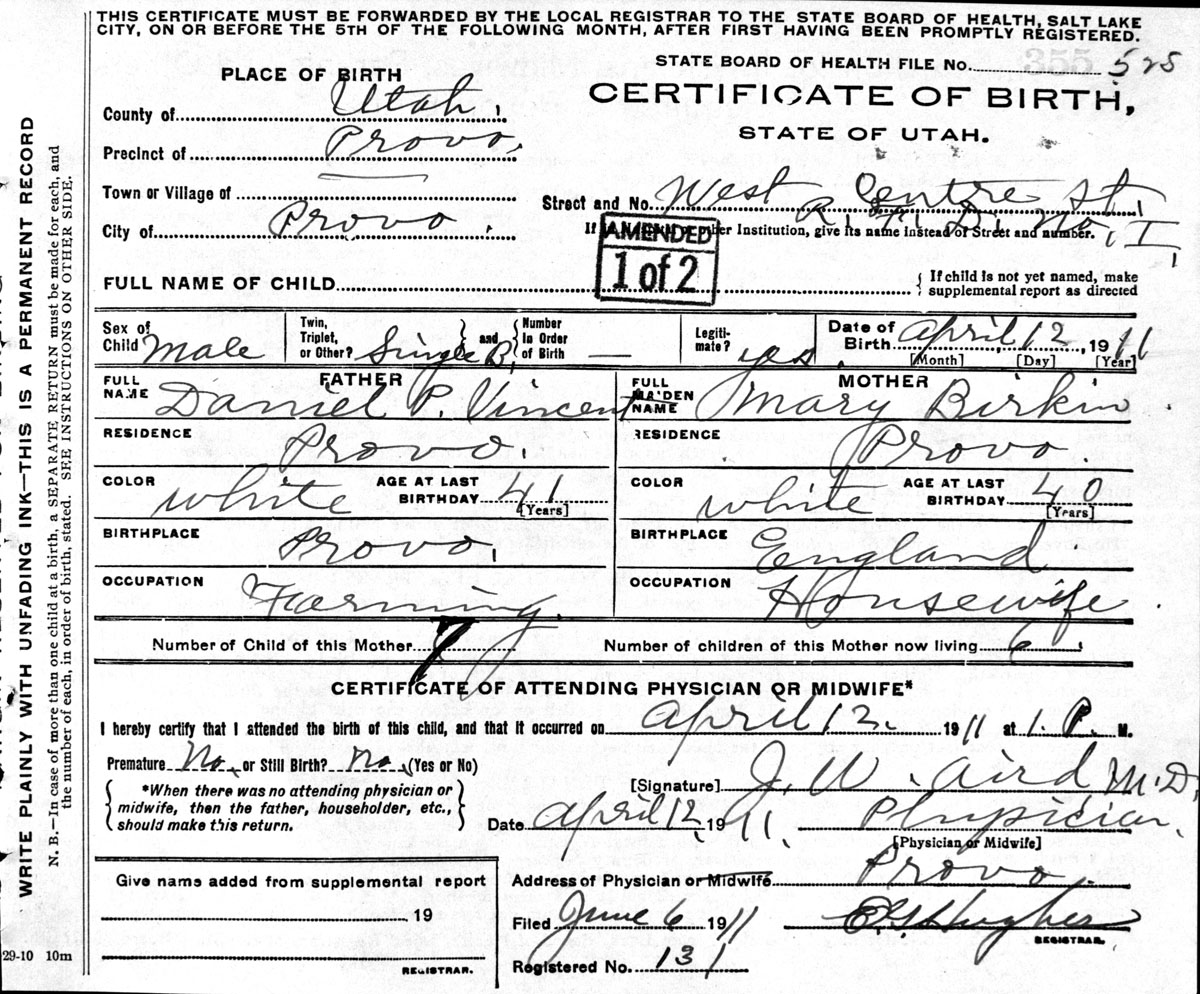 THIS CERTIFICATE MUST BE FORWARDED BY THE LOCAL REGISTRAR TO THE STATE BOARD OF HEALTH, SALT LAKE
CITY, ON OR BEFORE THE 5TH OF THE FOLLOWING MONTH, AFTER FIRST HAVING BEEN PROMPTLY REGISTERED.
STATE BOARD OF HEALTH FILE No. 355 525
PLACE OF BIRTH
CERTIFICATE OF BIRTH,
STATE OF UTAH.
County of Utah.
Precinct of Provo.
Town or Village of
Street and No. West Centre St.
R. F. D. No. I,
City of Provo.
If in Hospital or other Institution, give its name instead of Street and number.
AMENDED
1 of 2
FULL NAME OF CHILD
{ If child is not yet named, make
supplemental report as directed
Sex of Child Male
Twin, Triplet, or Other? Single B. and Number In Order of Birth —
Legiti-mate? yes.
Date of Birth April 12, 1911
[Month] [Day] [Year]
FATHER
FULL NAME Daniel P. Vincent
RESIDENCE Provo.
COLOR white AGE AT LAST BIRTHDAY 41 [Years]
BIRTHPLACE Provo.
OCCUPATION Farming
MOTHER
FULL MAIDEN NAME Mary Birkin.
RESIDENCE Provo.
COLOR white AGE AT LAST BIRTHDAY 40 [Years]
BIRTHPLACE England.
OCCUPATION Housewife.
Number of Child of this Mother 7 Number of children of this Mother now living 6
CERTIFICATE OF ATTENDING PHYSICIAN OR MIDWIFE*
I hereby certify that I attended the birth of this child, and that it occurred on April 12. 1911 at 1. P. M.
Premature No. or Still Birth? no. (Yes or No)
{ *When there was no attending physician or
midwife, then the father, householder, etc.,
should make this return. }
[Signature] J. W. Aird M.D.
Date April 12, 1911. Physician.
[Physician or Midwife]
Address of Physician or Midwife Provo.
Filed June 6 1911 E. G. Hughes
REGISTRAR.
Registered No. 131
Give name added from supplemental report
19
REGISTRAR.
29-10 10m
WRITE PLAINLY WITH UNFADING INK—THIS IS A PERMANENT RECORD
N. B.—In case of more than one child at a birth, a SEPARATE RETURN must be made for each, and
the number of each, in order of birth, stated. SEE INSTRUCTIONS ON OTHER SIDE.